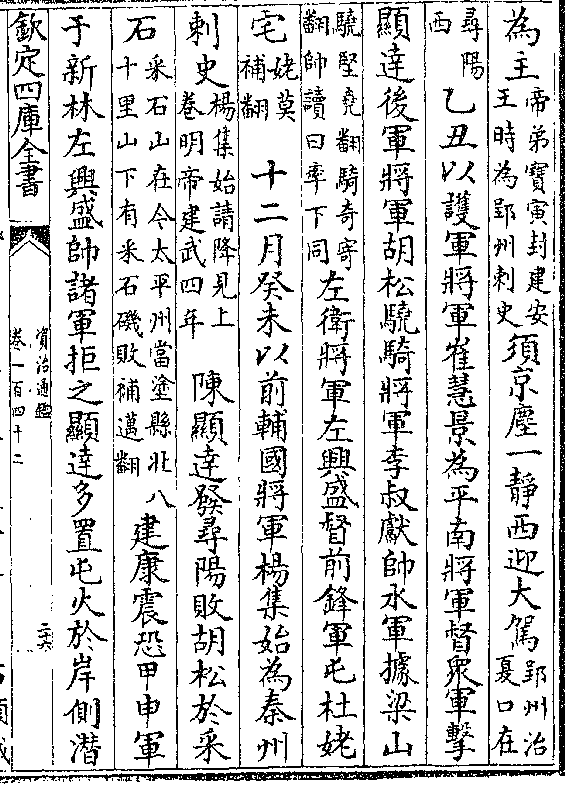 為主帝弟寶寅封建安王時為郢州刺史須京塵一靜西迎大駕郢州治夏口在
尋陽西乙丑以護軍將軍崔慧景為平南將軍督衆軍擊
顯達後軍將軍胡松驍騎將軍李叔獻帥水軍據梁山
驍堅堯翻騎奇寄翻帥讀曰率下同左衛將軍左興盛督前鋒軍屯杜姥
宅姥莫補翻 十二月癸未以前輔國將軍楊集始為秦州
刺史楊集始請降見上卷明帝建武四年 陳顯達發尋陽敗胡松於采
石采石山在今太平州當塗縣北八十里山下有采石磯敗補邁翻建康震恐甲申軍
于新林左興盛帥諸軍拒之顯達多置屯火於岸側潛
欽定四庫全書
資治通鑑
卷一百四十二